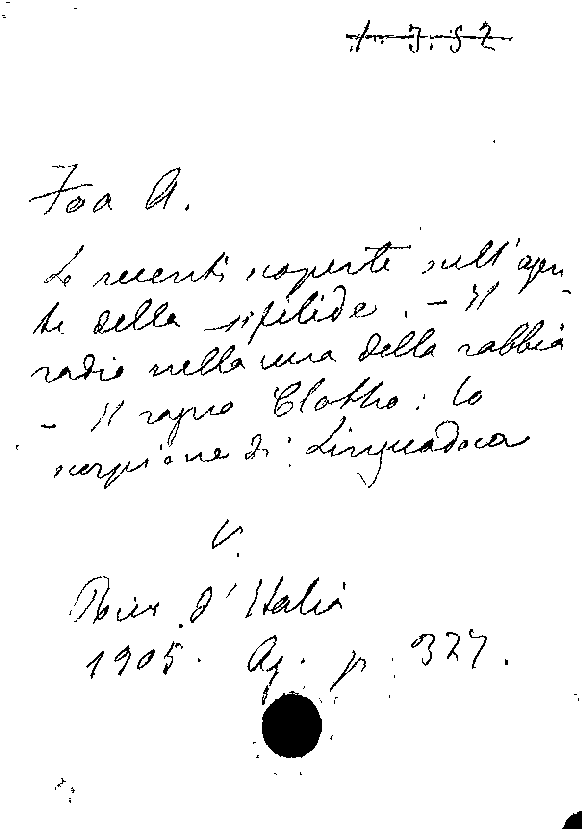 1. 3. 52
Foa A.
Le recenti scoperte sull'agen-
te della sifilide. - Il
radio nella cura della rabbia
- Il ragno Clotho: lo
scorpione di Linguadoca
V.
Riv. d'Italia
1905. Ag. p. 327.